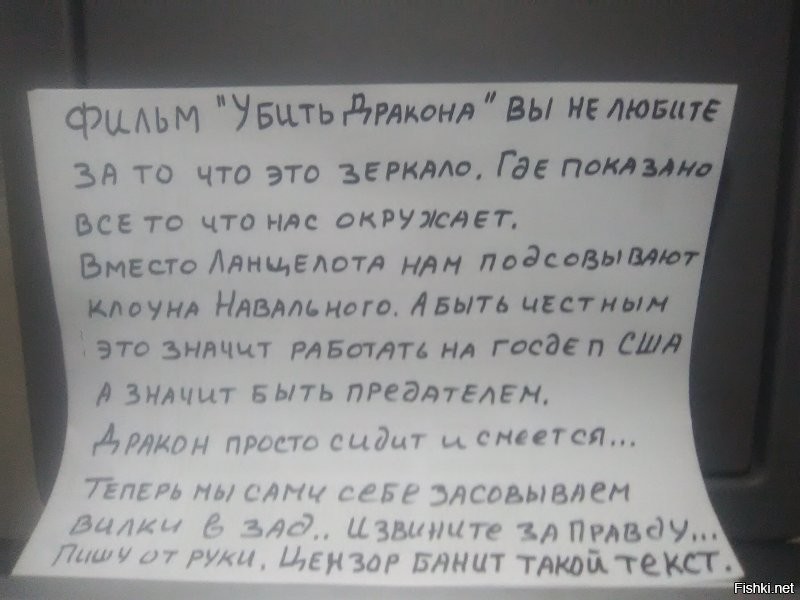 Фильм "Убить Дракона" вы не любите
за то что это зеркало. Где показано
все то что нас окружает.
Вместо Ланщелота нам подсовывают
клоуна Навального. А быть честным
это значит работать на госдеп США
а значит быть предателем.
Дракон просто сидит и смеется...
Теперь мы сами себе засовываем
вилки в зад.. Извините за правду...
Пишу от руки. Цензор банит такой текст.
Fishki.net